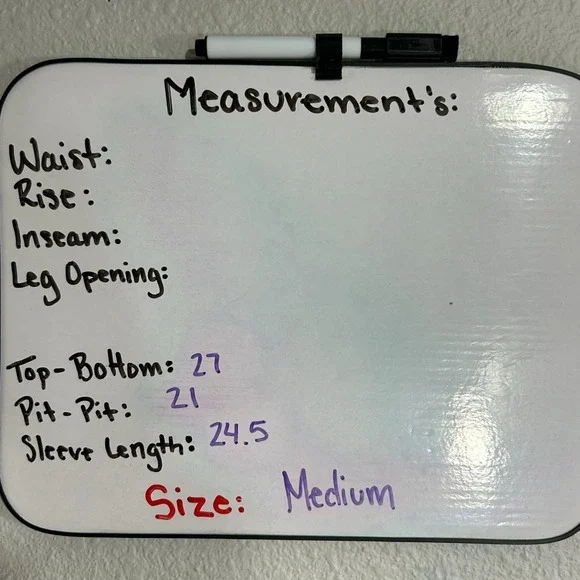 Measurement's:
Waist:
Rise:
Inseam:
Leg Opening:
Top-Bottom: 27
Pit-Pit: 21
Sleeve Length: 24.5
Size: Medium